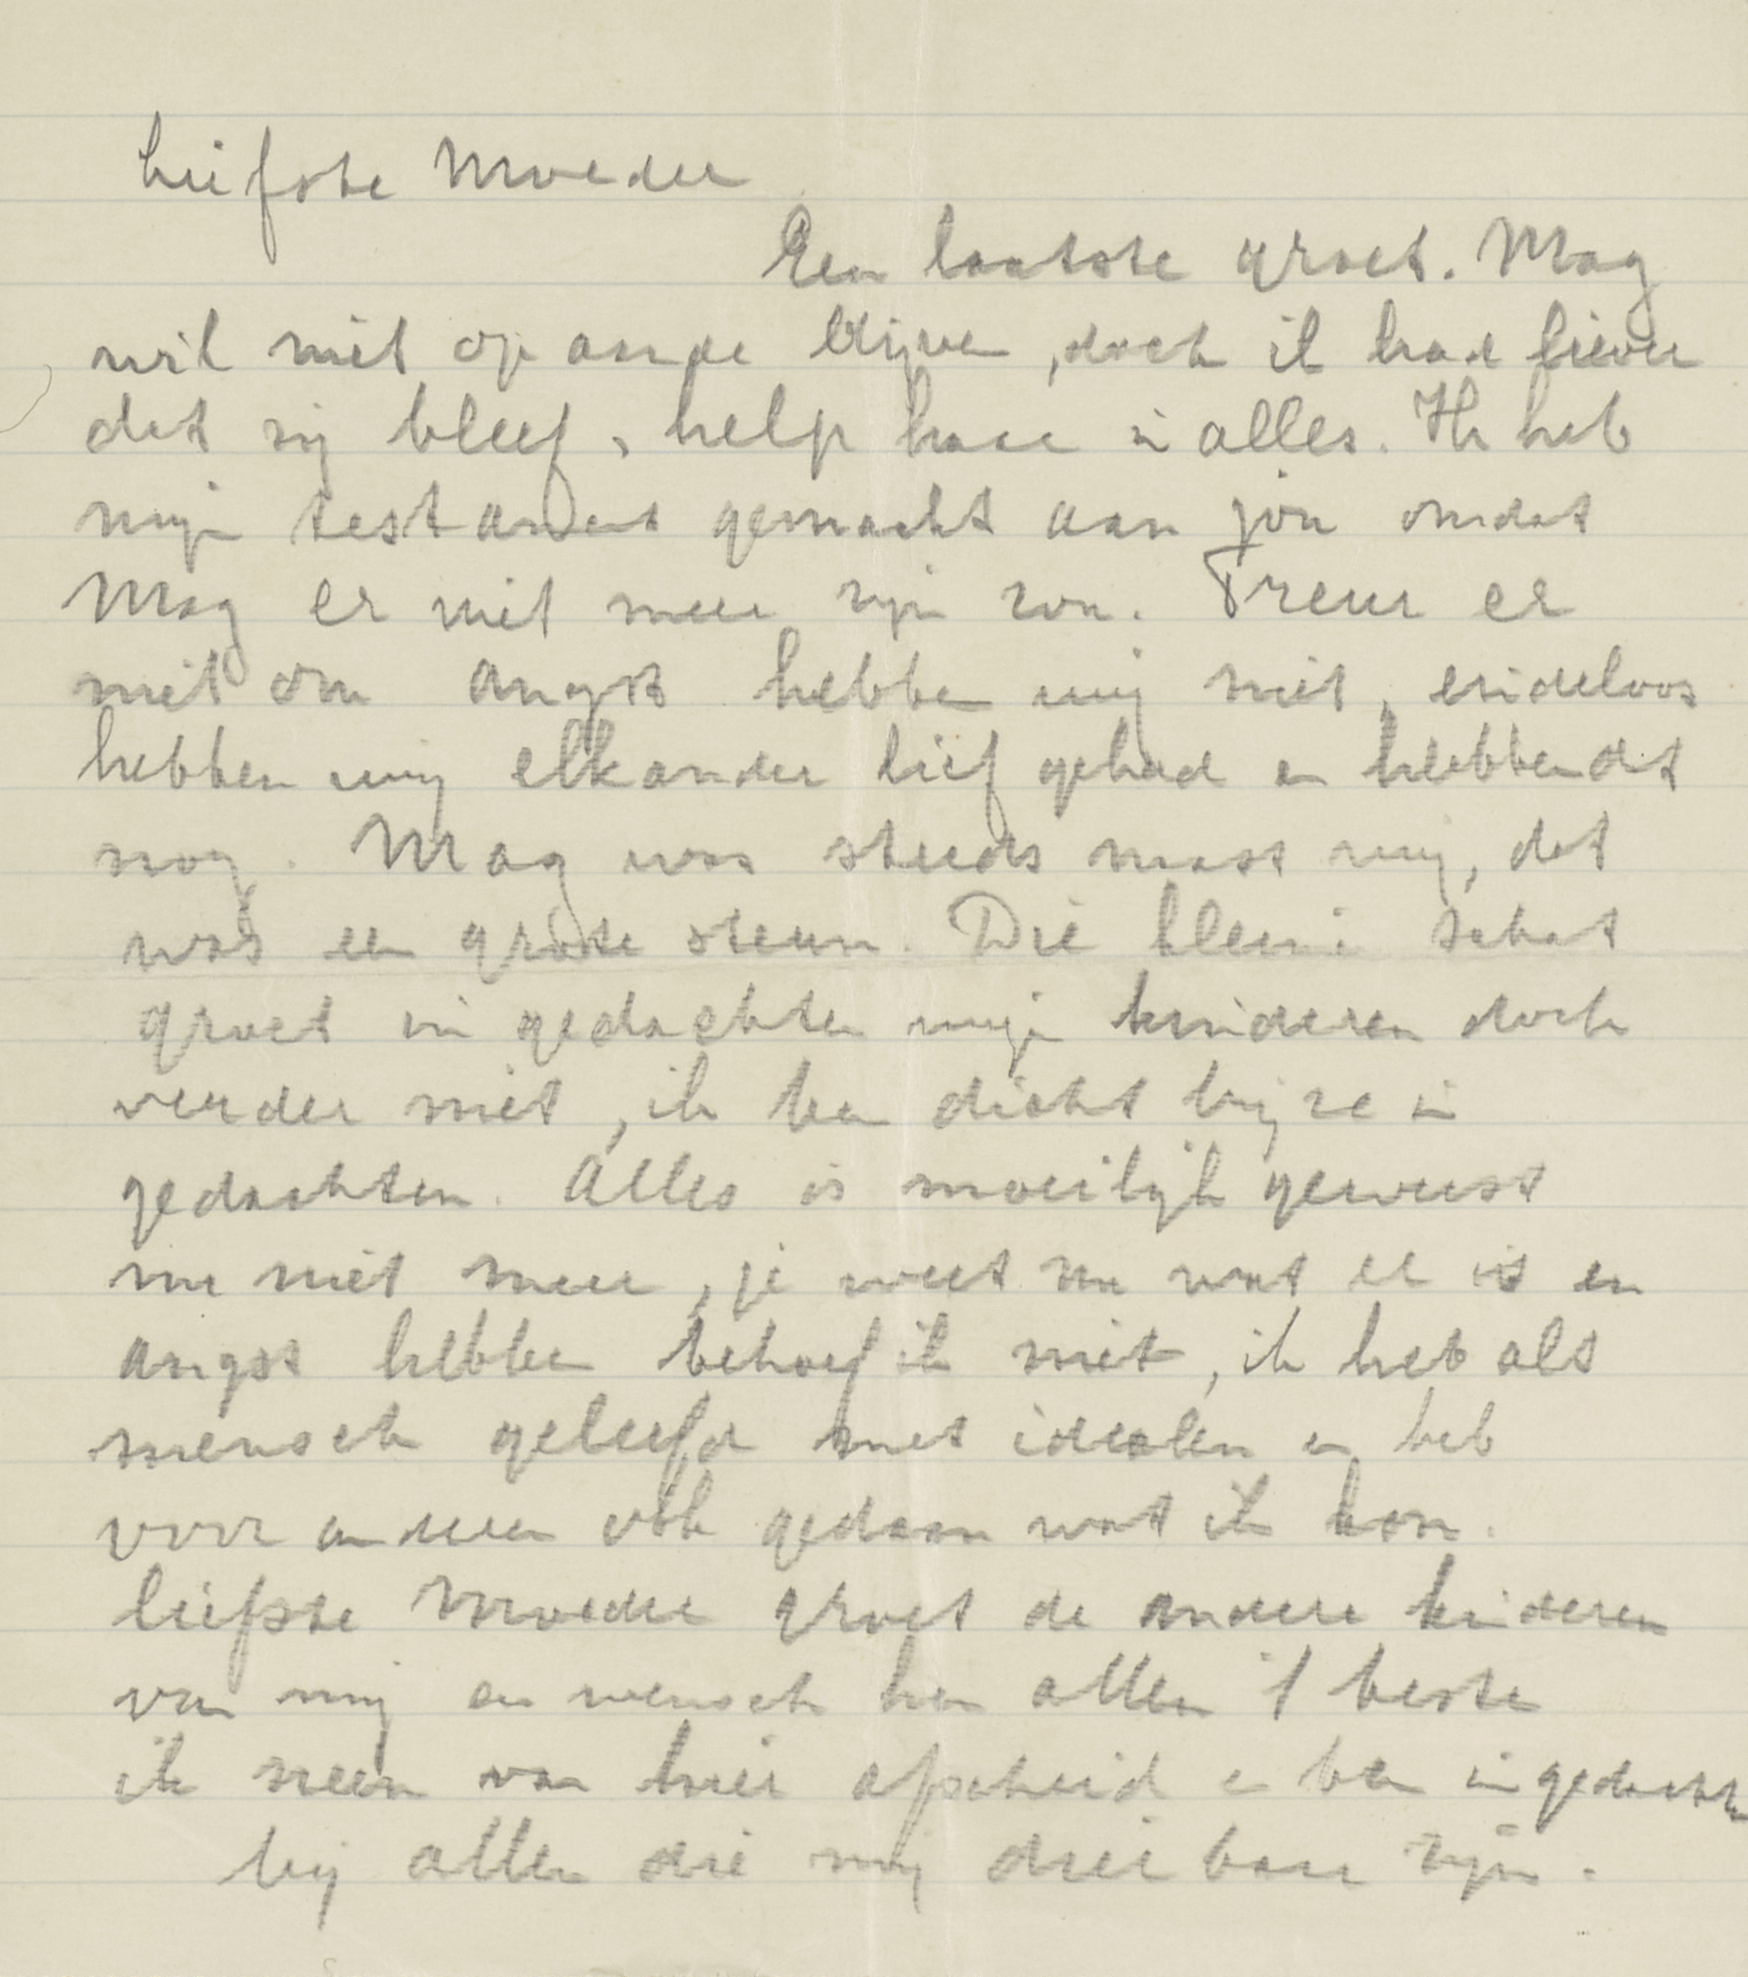 Liefste Moeder
Een laatste groet. Mag
wil niet op aarde blijven, doch ik had liever
dat zij bleef, help haar in alles. Ik heb
mijn testament gemaakt aan jou omdat
Mag er niet meer zijn zou. Treur er
niet om angst hebben wij niet, eindeloos
hebben wij elkander lief gehad en hebben dat
nog. Mag was steeds naast mij, dat
was een grote steun. Die kleine schat
groet in gedachten mijn kinderen doch
verder niet, ik ben dicht bij ze in
gedachten. Alles is moeilijk geweest
nu niet meer, je weet nu wat er is en
angst hebben behoef ik niet, ik heb als
mensch geleefd met idealen en heb
voor anderen ook gedaan wat ik kon.
liefste Moeder groet de andere kinderen
van mij en wensch hen allen 't beste
ik neem van hier afscheid en ben in gedachten
bij allen die mij dierbaar zijn.